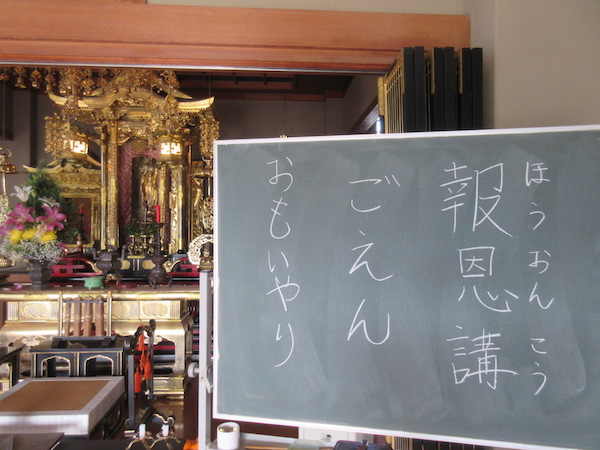 ほうおんこう
報恩講
ごえん
おもいやり